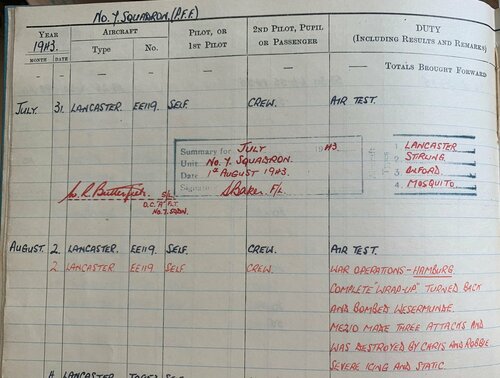 No. 7 SQUADRON. (P.F.F.)
YEAR AIRCRAFT PILOT, OR 2ND PILOT, PUPIL DUTY
1943. Type No. 1ST PILOT OR PASSENGER (INCLUDING RESULTS AND REMARKS)
MONTH DATE
— — — — — — TOTALS BROUGHT FORWARD
JULY 31. LANCASTER EE119. SELF. CREW. AIR TEST.
Summary for JULY 1943. 1 LANCASTER
Unit No. 7. SQUADRON. Aircraft 2 STIRLING
Date 1st AUGUST 1943. Types 3 OXFORD
Signature S Baker F/L 4 MOSQUITO.
S/L
O.C. "A" FLT
No. 7. SQDN.
AUGUST. 2 LANCASTER. EE119. SELF. CREW. AIR TEST.
2 LANCASTER EE119. SELF CREW. WAR OPERATIONS - HAMBURG
COMPLETE "WRAP-UP" TURNED BACK
AND BOMBED WESERMUNDE.
ME210 MADE THREE ATTACKS AND
WAS DESTROYED BY CHRIS AND ROBBIE
SEVERE ICING AND STATIC.